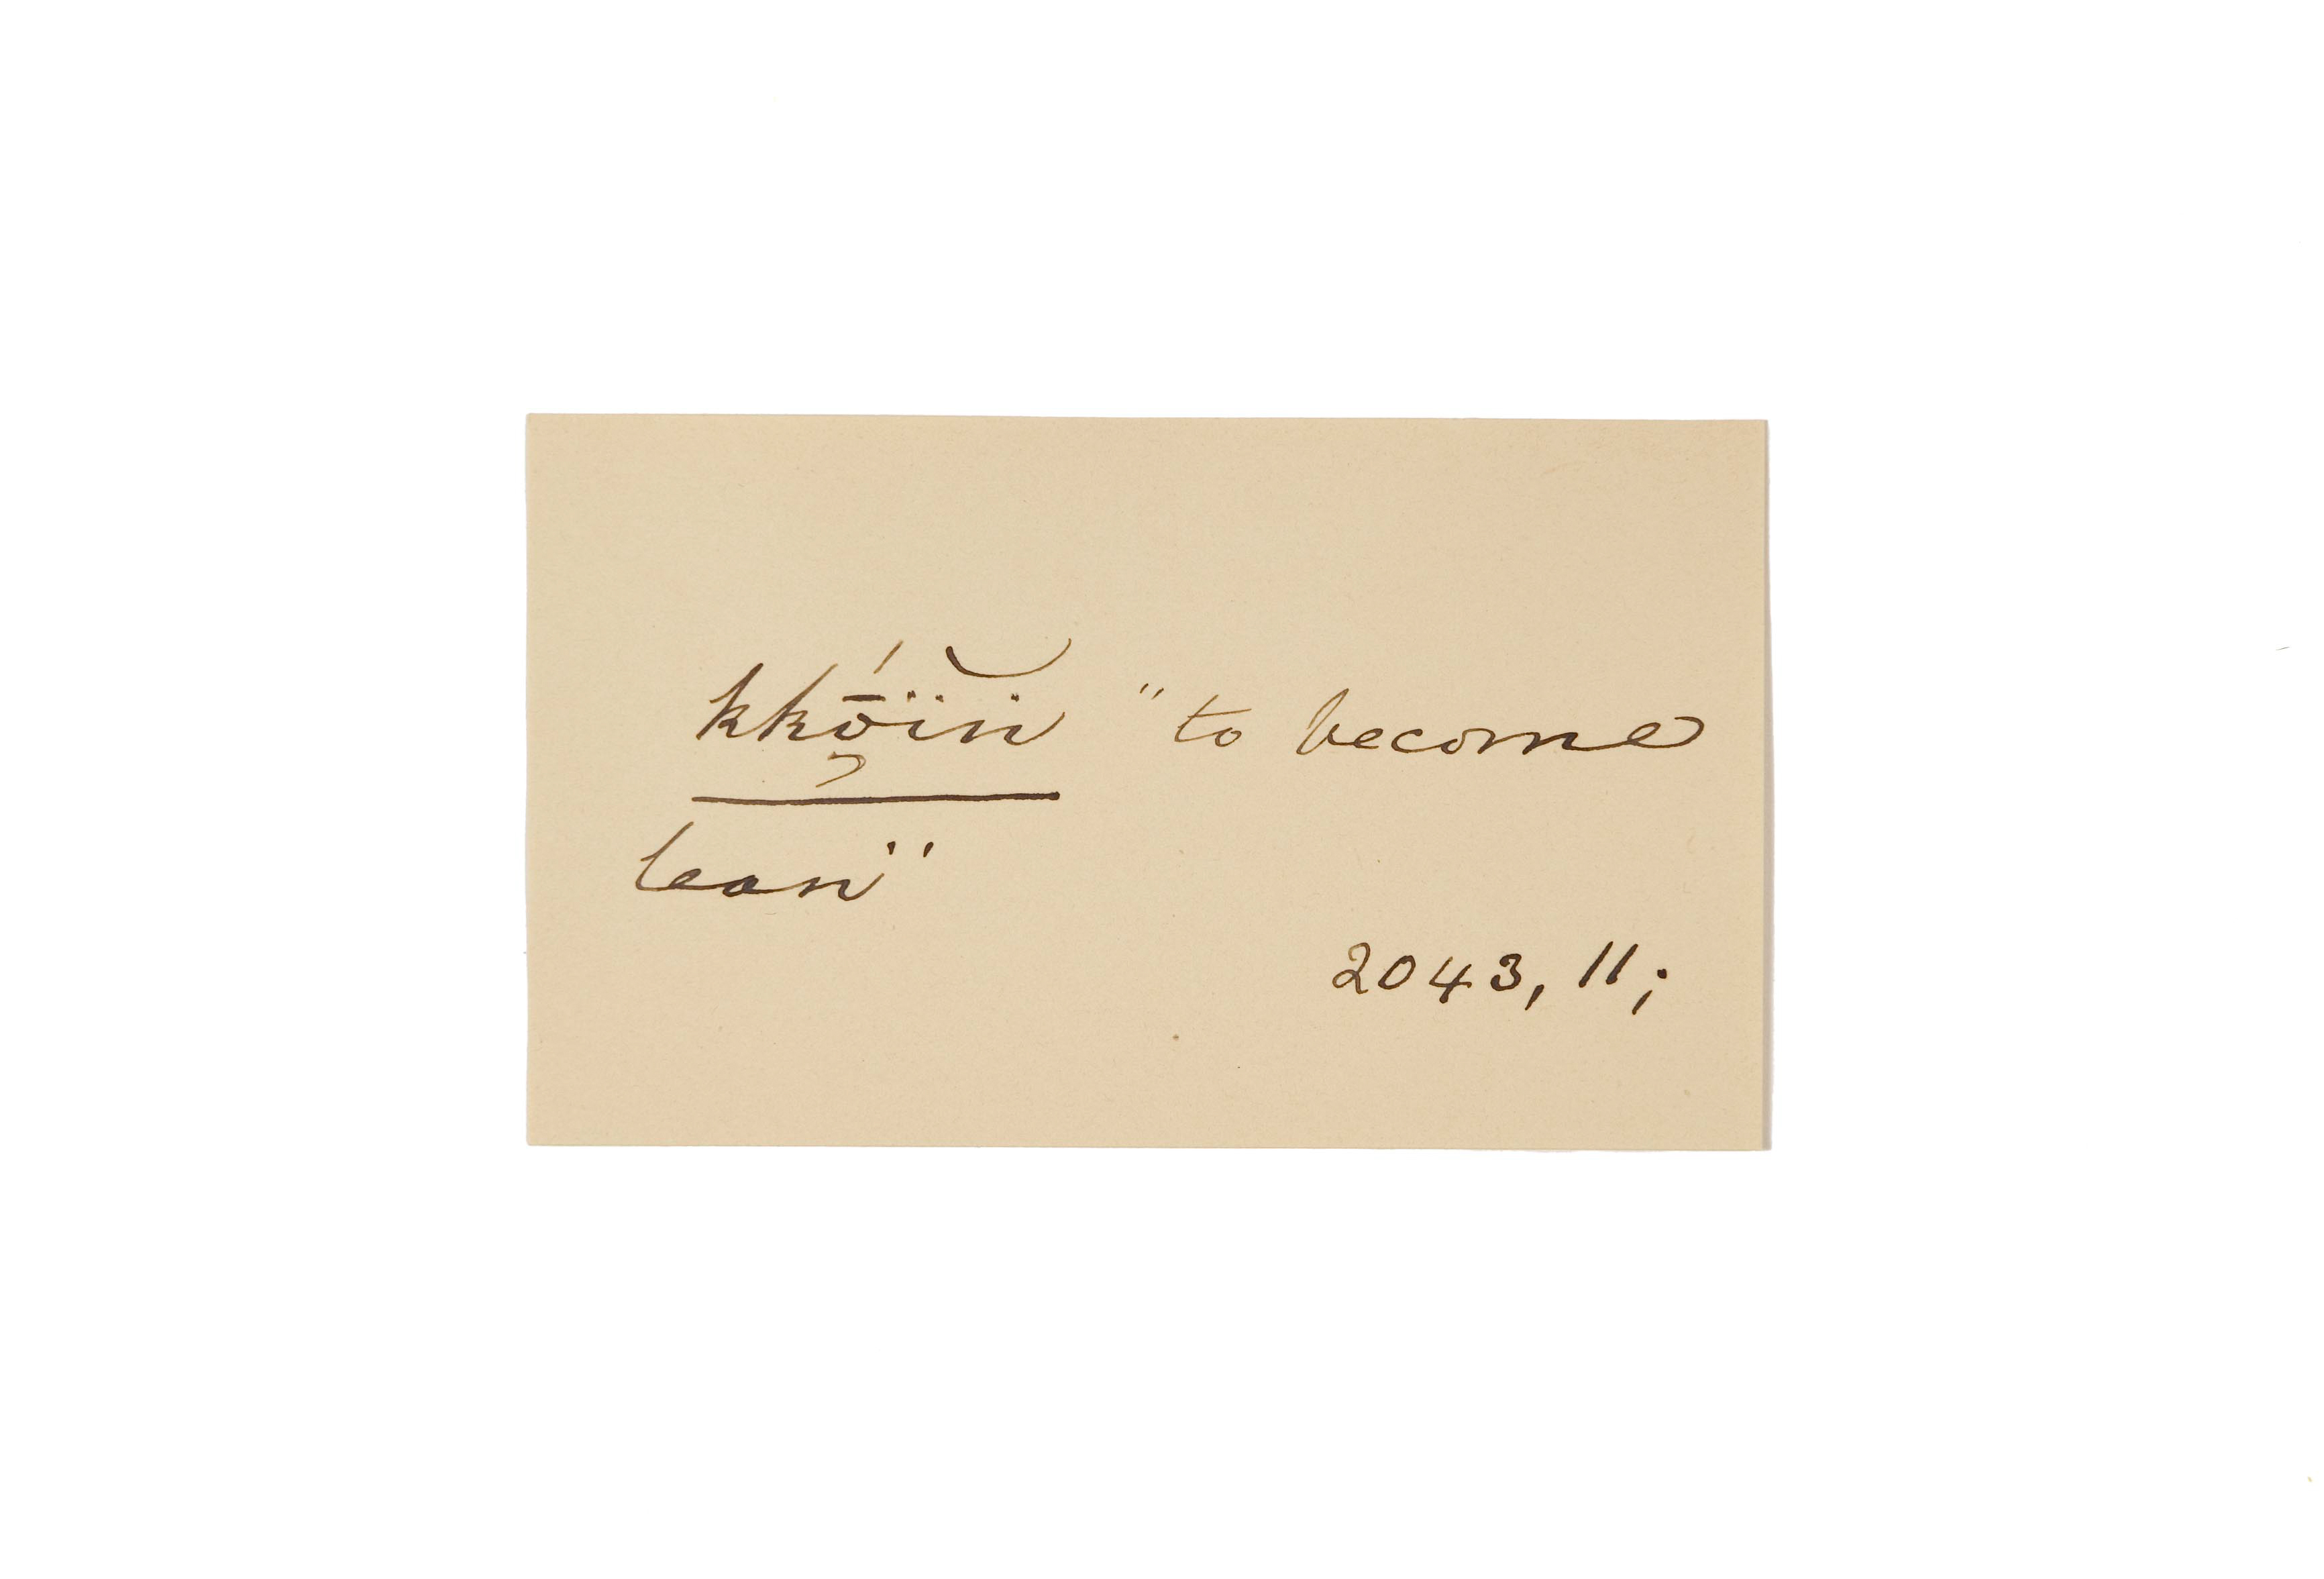 kkṓ̜ïn̈ "to become
lean"
2043, 11;